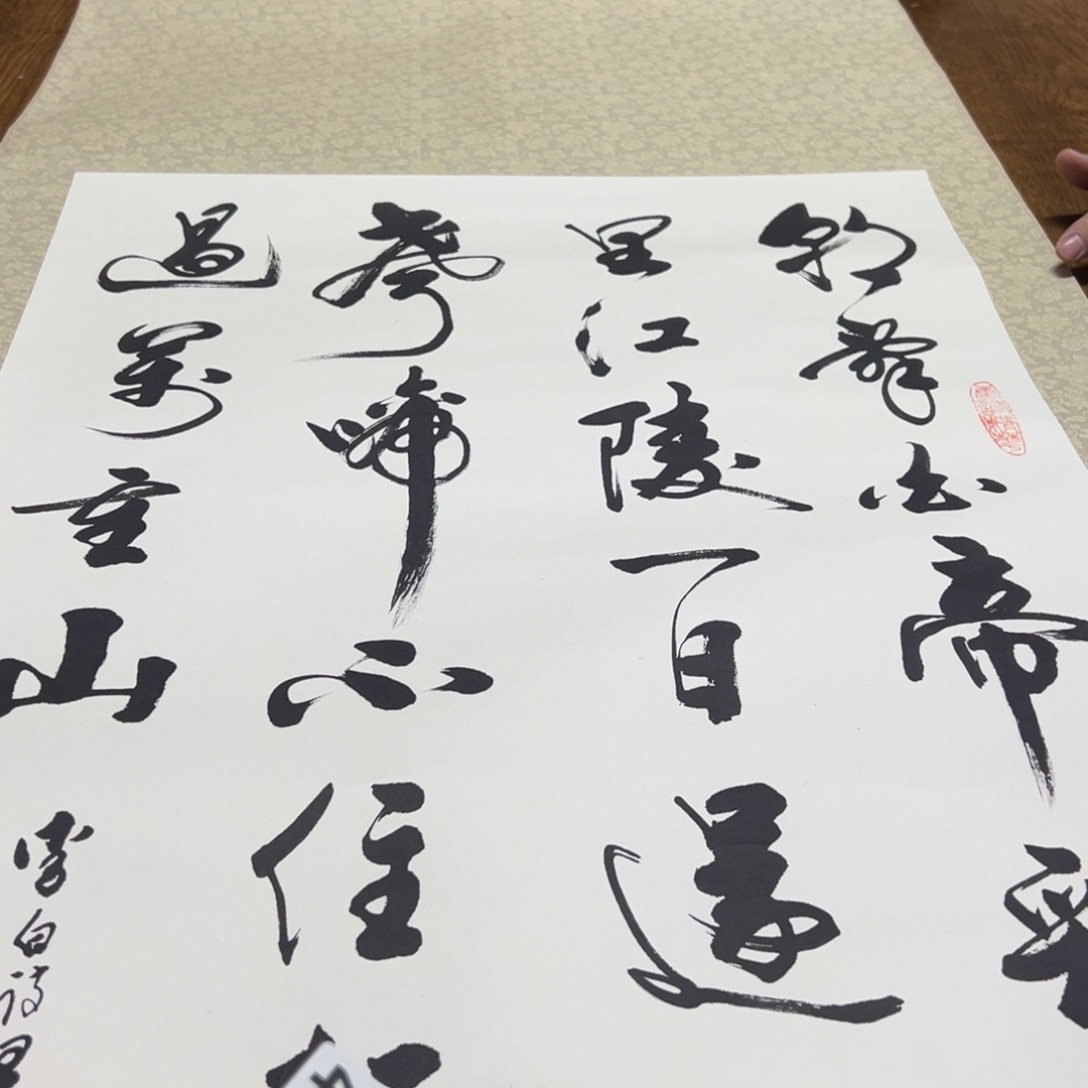 朝辭白帝彩
里江陵一日還
聲啼不住
過萬重山
李白詩